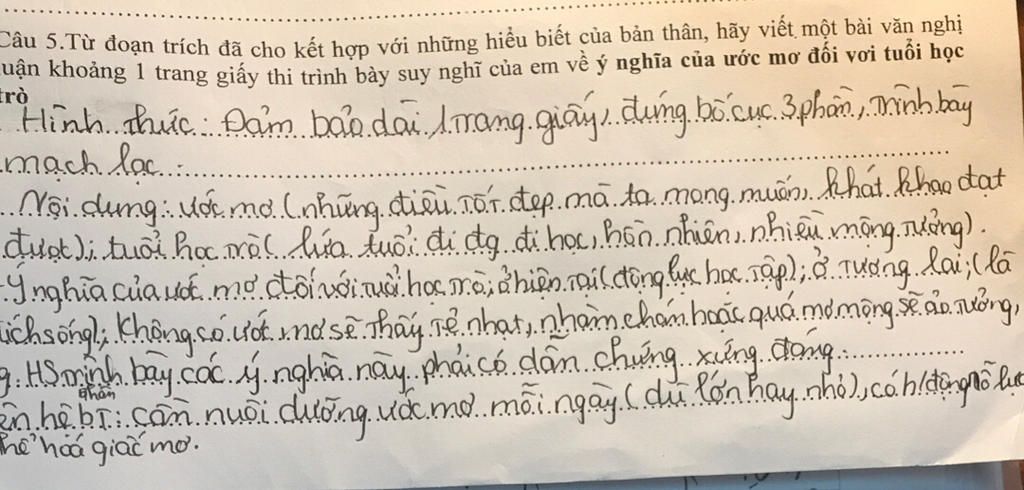 Câu 5.Từ đoạn trích đã cho kết hợp với những hiểu biết của bản thân, hãy viết một bài văn nghị
uận khoảng 1 trang giấy thi trình bày suy nghĩ của em về ý nghĩa của ước mơ đối vơi tuổi học
trò
Hình thức: Đảm bảo dài 1 trang giấy, đúng bố cục 3 phần, trình bày
mạch lạc.
Nội dung: ước mơ (những điều tốt đẹp mà ta mong muốn, khát khao đạt
được); tuổi học trò (lứa tuổi đi đg đi học, hồn nhiên, nhiều mộng tưởng).
- Ý nghĩa của ước mơ đối với tuổi học trò; ở hiện tại (động lực học tập); ở tương lai; (là
ích sống); Không có ước mơ sẽ thấy tẻ nhạt, nhàm chán hoặc quá mơ mộng sẽ ảo tưởng,
g. HS trình bày các ý nghĩa này phải có dẫn chứng xứng đáng.
ên hệ bản thân: cần nuôi dưỡng ước mơ mỗi ngày (dù lớn hay nhỏ), có h/động nỗ lực
hể hoá giấc mơ.